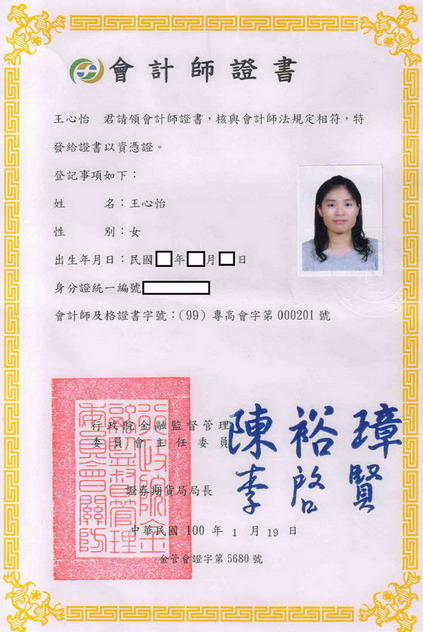 會計師證書
王心怡 君請領會計師證書，核與會計師法規定相符，特
發給證書以資憑證。
登記事項如下：
姓名：王心怡
性別：女
出生年月日：民國 年 月 日
身分證統一編號
會計師及格證書字號：(99) 專高會字第 000201 號
行政院金融監督管理
委員會主任委員
陳裕璋
證券期貨局局長
李啓賢
中華民國 100 年 1 月 19 日
金管會證字第 5680 號
行政院金融監督管理委員會關防